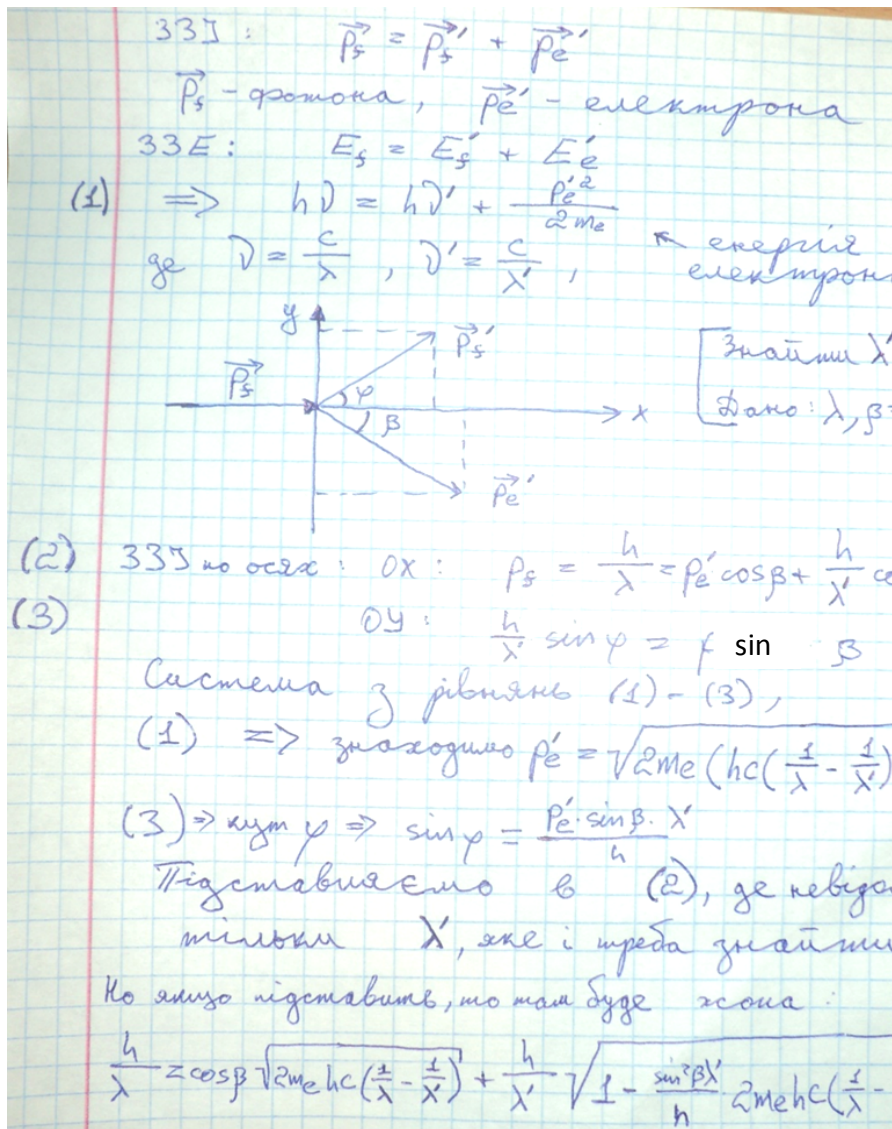 ЗЗІ: p⃗f = p⃗f' + p⃗e'
p⃗f - фотона, p⃗e' - електрона
ЗЗЕ: Ef = Ef' + Ee'
(1) => hν = hν' + pe'²/2me
де ν = c/λ, ν' = c/λ', ← енергія
електрон
y
p⃗f'
p⃗f
φ
β
x
p⃗e'
Знайти λ'
Дано: λ, β
(2) ЗЗІ по осях: OX: pf = h/λ = pe' cosβ + h/λ' co
(3) OY: h/λ' sin φ = p sin β
Система з рівнянь (1)-(3),
(1) => знаходимо pe' = √2me(hc(1/λ - 1/λ')
(3) => кут φ => sin φ = pe'·sinβ·λ'/h
Підставляємо в (2), де невідо
тільки λ', яке і треба знайти
Но якщо підставить, то там буде жопа:
h/λ = cosβ √2me hc(1/λ - 1/λ') + h/λ' √1 - sin²βλ'/h 2me hc(1/λ -